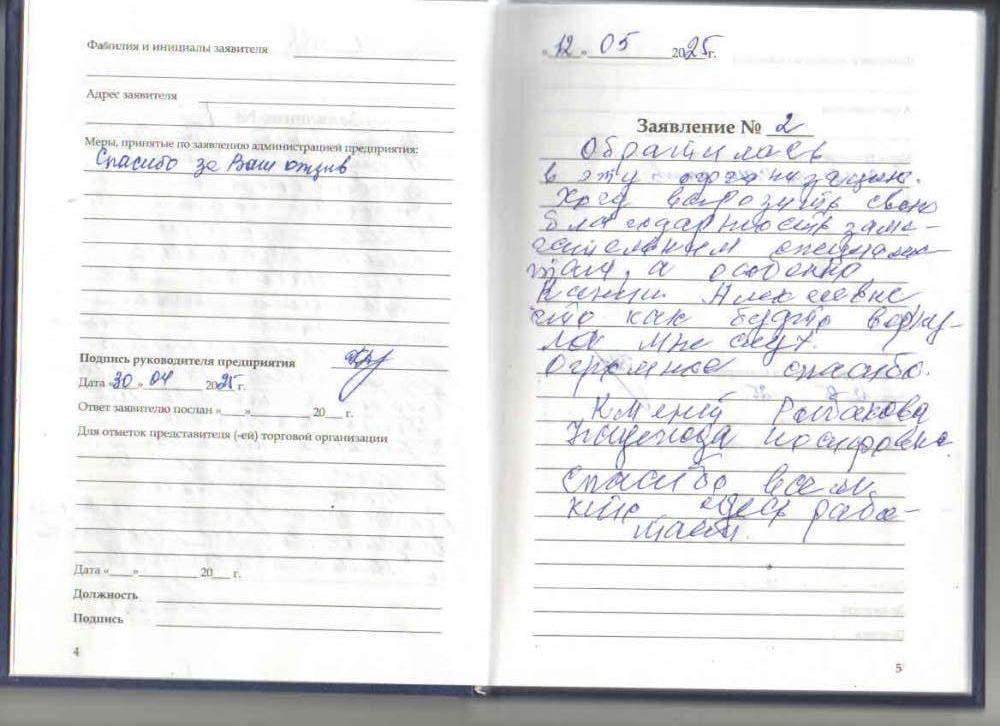 Фамилия и инициалы заявителя
Адрес заявителя
Меры, принятые по заявлению администрацией предприятия:
Спасибо за Ваш отзыв
Подпись руководителя предприятия
Дата «30» 04 2025 г.
Ответ заявителю послан «___»__________ 20___ г.
Для отметок представителя (-ей) торговой организации
Дата «___»__________ 20___ г.
Должность
Подпись
4
«12» 05 2025 г.
Заявление № 2
Обратилась
в эту организацию.
Хочу выразить свою
благодарность заме-
чательным специалис-
там, а особенно
Алексеевне
что как будто верну-
ла мне слух.
Огромное спасибо.
Надежда Иосифовна
Спасибо всем
кто здесь рабо-
тает.
5